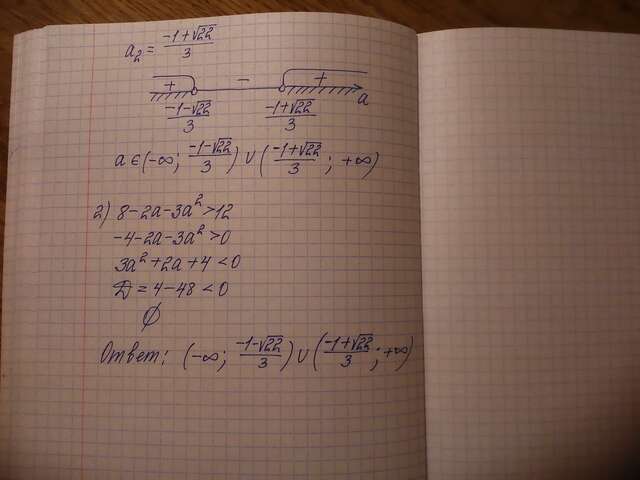 a₂ = (-1+√22)/3
+ - + a
(-1-√22)/3 (-1+√22)/3
a ∈ (-∞; (-1-√22)/3) ∪ ((-1+√22)/3; +∞)
2) 8-2a-3a²>12
-4-2a-3a²>0
3a²+2a+4<0
D = 4-48<0
∅
Ответ: (-∞; (-1-√22)/3) ∪ ((-1+√22)/3; +∞)